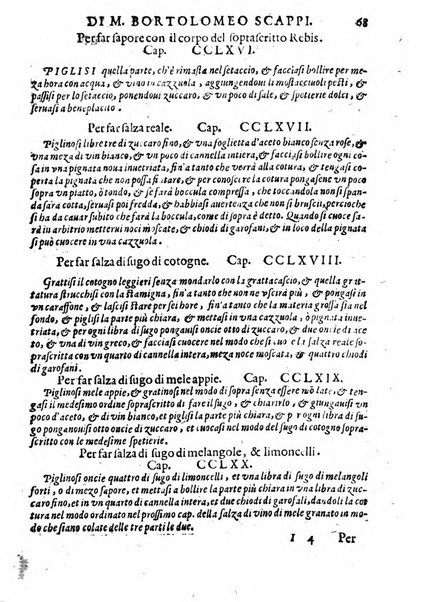 DI M. BORTOLOMEO SCAPPI. 68
Per far sapore con il corpo del soprascritto Rebis.
Cap. CCLXVI.
PIGLISI quella parte, ch'è rimasta nel setaccio, & facciasi bollire per me-
za hora con acqua, & vino in cazzuola, aggiungendoui li mostacciuoli pesti, &
passisi per lo setaccio, ponendoui zuccaro, & un poco di sale, & spetierie dolci, &
seruasi a beneplacito.
Per far salza reale. Cap. CCLXVII.
Piglinosi libre tre di zuccaro fino, & una foglietta d'aceto bianco senza rose, &
una meza di vin bianco, & un poco di cannella intiera, & faccinosi bollire ogni co-
sa in vna pignata noua inuetriata, fin'a tanto che verrà alla cottura, & tengasi co-
perta la pignata che non possa fiatare, & per conoscere la cottura pongasene un po
co sopra un piatto, & se farà boccula compressa, che toccandola non si span-
da sarà cotto, seruasi poi fredda, & habbiasi auertenza che non si bruscii, perciochè
si ha da cauar subito che farà la boccula, come di sopra è detto. Quando si cuoce sa-
rà in arbitrio metterui noci moscate, & chiodi di garofani, & in loco della pignata
si può cuocere in vna cazzuola.
Per far salza di sugo di cotogne. Cap. CCLXVIII.
Grattisi il cotogno leggieri senza mondarlo con la grattacascio, & quella grat
tatura strucchisi con la stamigna, fin'a tanto che non ne vscirà più, & pongasi in
vn caraffone, & lascisi stare per sei hore, fin'a tanto che la materia grossa sia nel
fondo, & piglisi la parte più chiara, & mettasi in vna cazzuola, ò pignata inuetria-
ta, & per ogni libra di sugo pongasi oncie otto di zuccaro, & vn'oncia & di ace-
to, & un di vin greco, & facciasi cuocere nel modo che si è fatto la salza reale so-
prascritta con vn quarto di cannella intera, meza noce moscata, & quattro chiodi
di garofani.
Per far salza di sugo di mele appie. Cap. CCLXIX.
Piglinosi mele appie, & grattinosi nel modo di sopra senza essere mõdate, & ten-
gasi il medesimo ordine soprascritto di trare il sugo, & chiarirlo, & giungasi vn po
co d'aceto, & di vin bianco, et piglisi la parte più chiara, & per ogni libra di sugo
pongasi oncie otto di zuccaro, et cuocasi nel modo del sugo di cotogno sopra-
scritto con le medesime spetierie.
Per far salza di sugo di melangole, & limoncelli.
Cap. CCLXX.
Piglinosi oncie quattro di sugo di limoncelli, et vna libra di sugo di melangoli
forti, o di mezo sapore, et mettasi a bollire la parte più chiara in vna libra di zuc-
caro, et vn quarto di cannella intera, et due chiodi di garofali, dandouisi la cot-
tura nel modo ordinato nel prossimo cap. della salza di vino di mele granato in mo-
do che siano colate delle tre parti le due.
I 4 Per